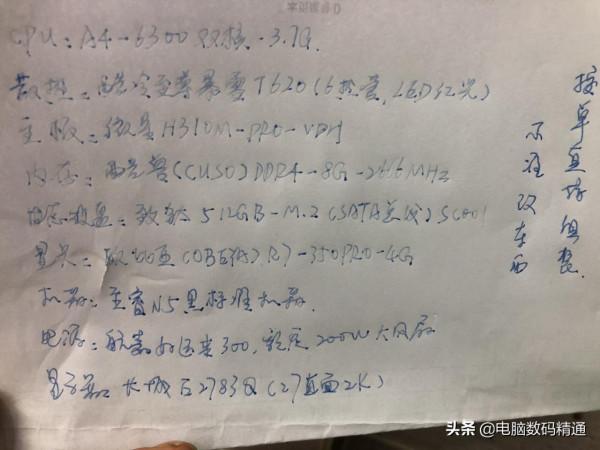 CPU：A4-6300 双核-3.7G.
散热：酷冷至尊暴雪T620（6热管，LED红光）
主板：微星H310M-PRO-VDH
内存：（CUSO）DDR4-8G-2666MHZ
固态硬盘：512GB-M.2（SATA总线）
显卡：（OBE依）R7-350PRO-4G
机箱：至睿N5黑标准机箱.
电源：航嘉300，额定200W大风扇
显示器：长城2783Q（27直面2K）
按单直接组装.
不准改东西
头条 @电脑数码精通